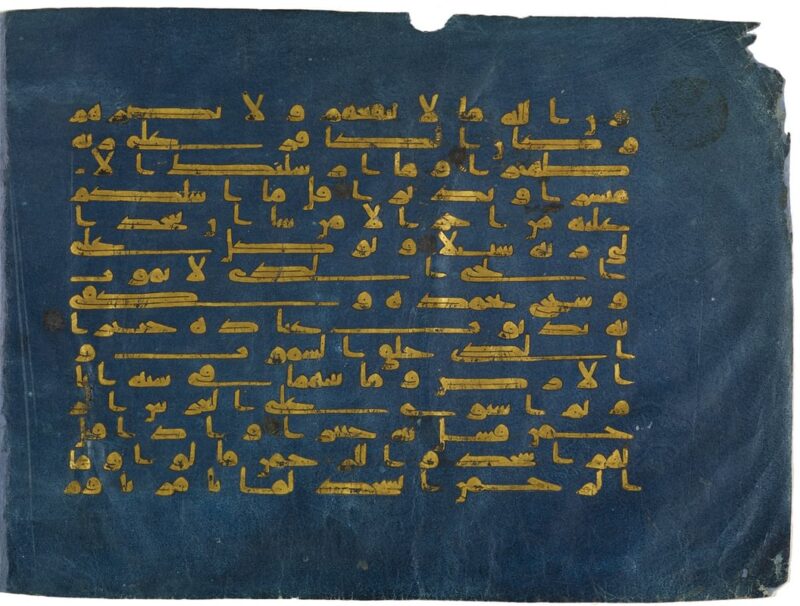 دون الله ما لا ينفعهم ولا يضرهم
وكان الكافر على ربه
ظهيرا وما ارسلنك الا
مبشرا ونذيرا قل ما اسلكم
عليه من اجر الا من شا ان يتخذ ا
لى ربه سبيلا وتوكل على
الحى الذى لا يموت
وسبح بحمده وكفى
به بذنوب عباده خبيرا
الذى خلق السموت و
الارض وما بينهما فى ستة ايا
م ثم استوى على العرش الر
حمن فسل به خبيرا واذا قيل
لهم اسجدوا للرحمن قالوا وما
الرحمن انسجد لما تامرنا وز